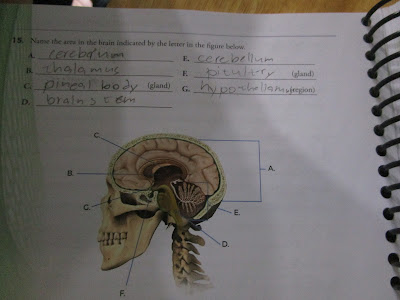 15. Name the area in the brain indicated by the letter in the figure below.
A. cerebrum E. cerebellum
B. thalamus F. (gland)
C. pineal body (gland) G. (region)
D. brainstem
C.
B.
A.
G.
E.
D.
F.